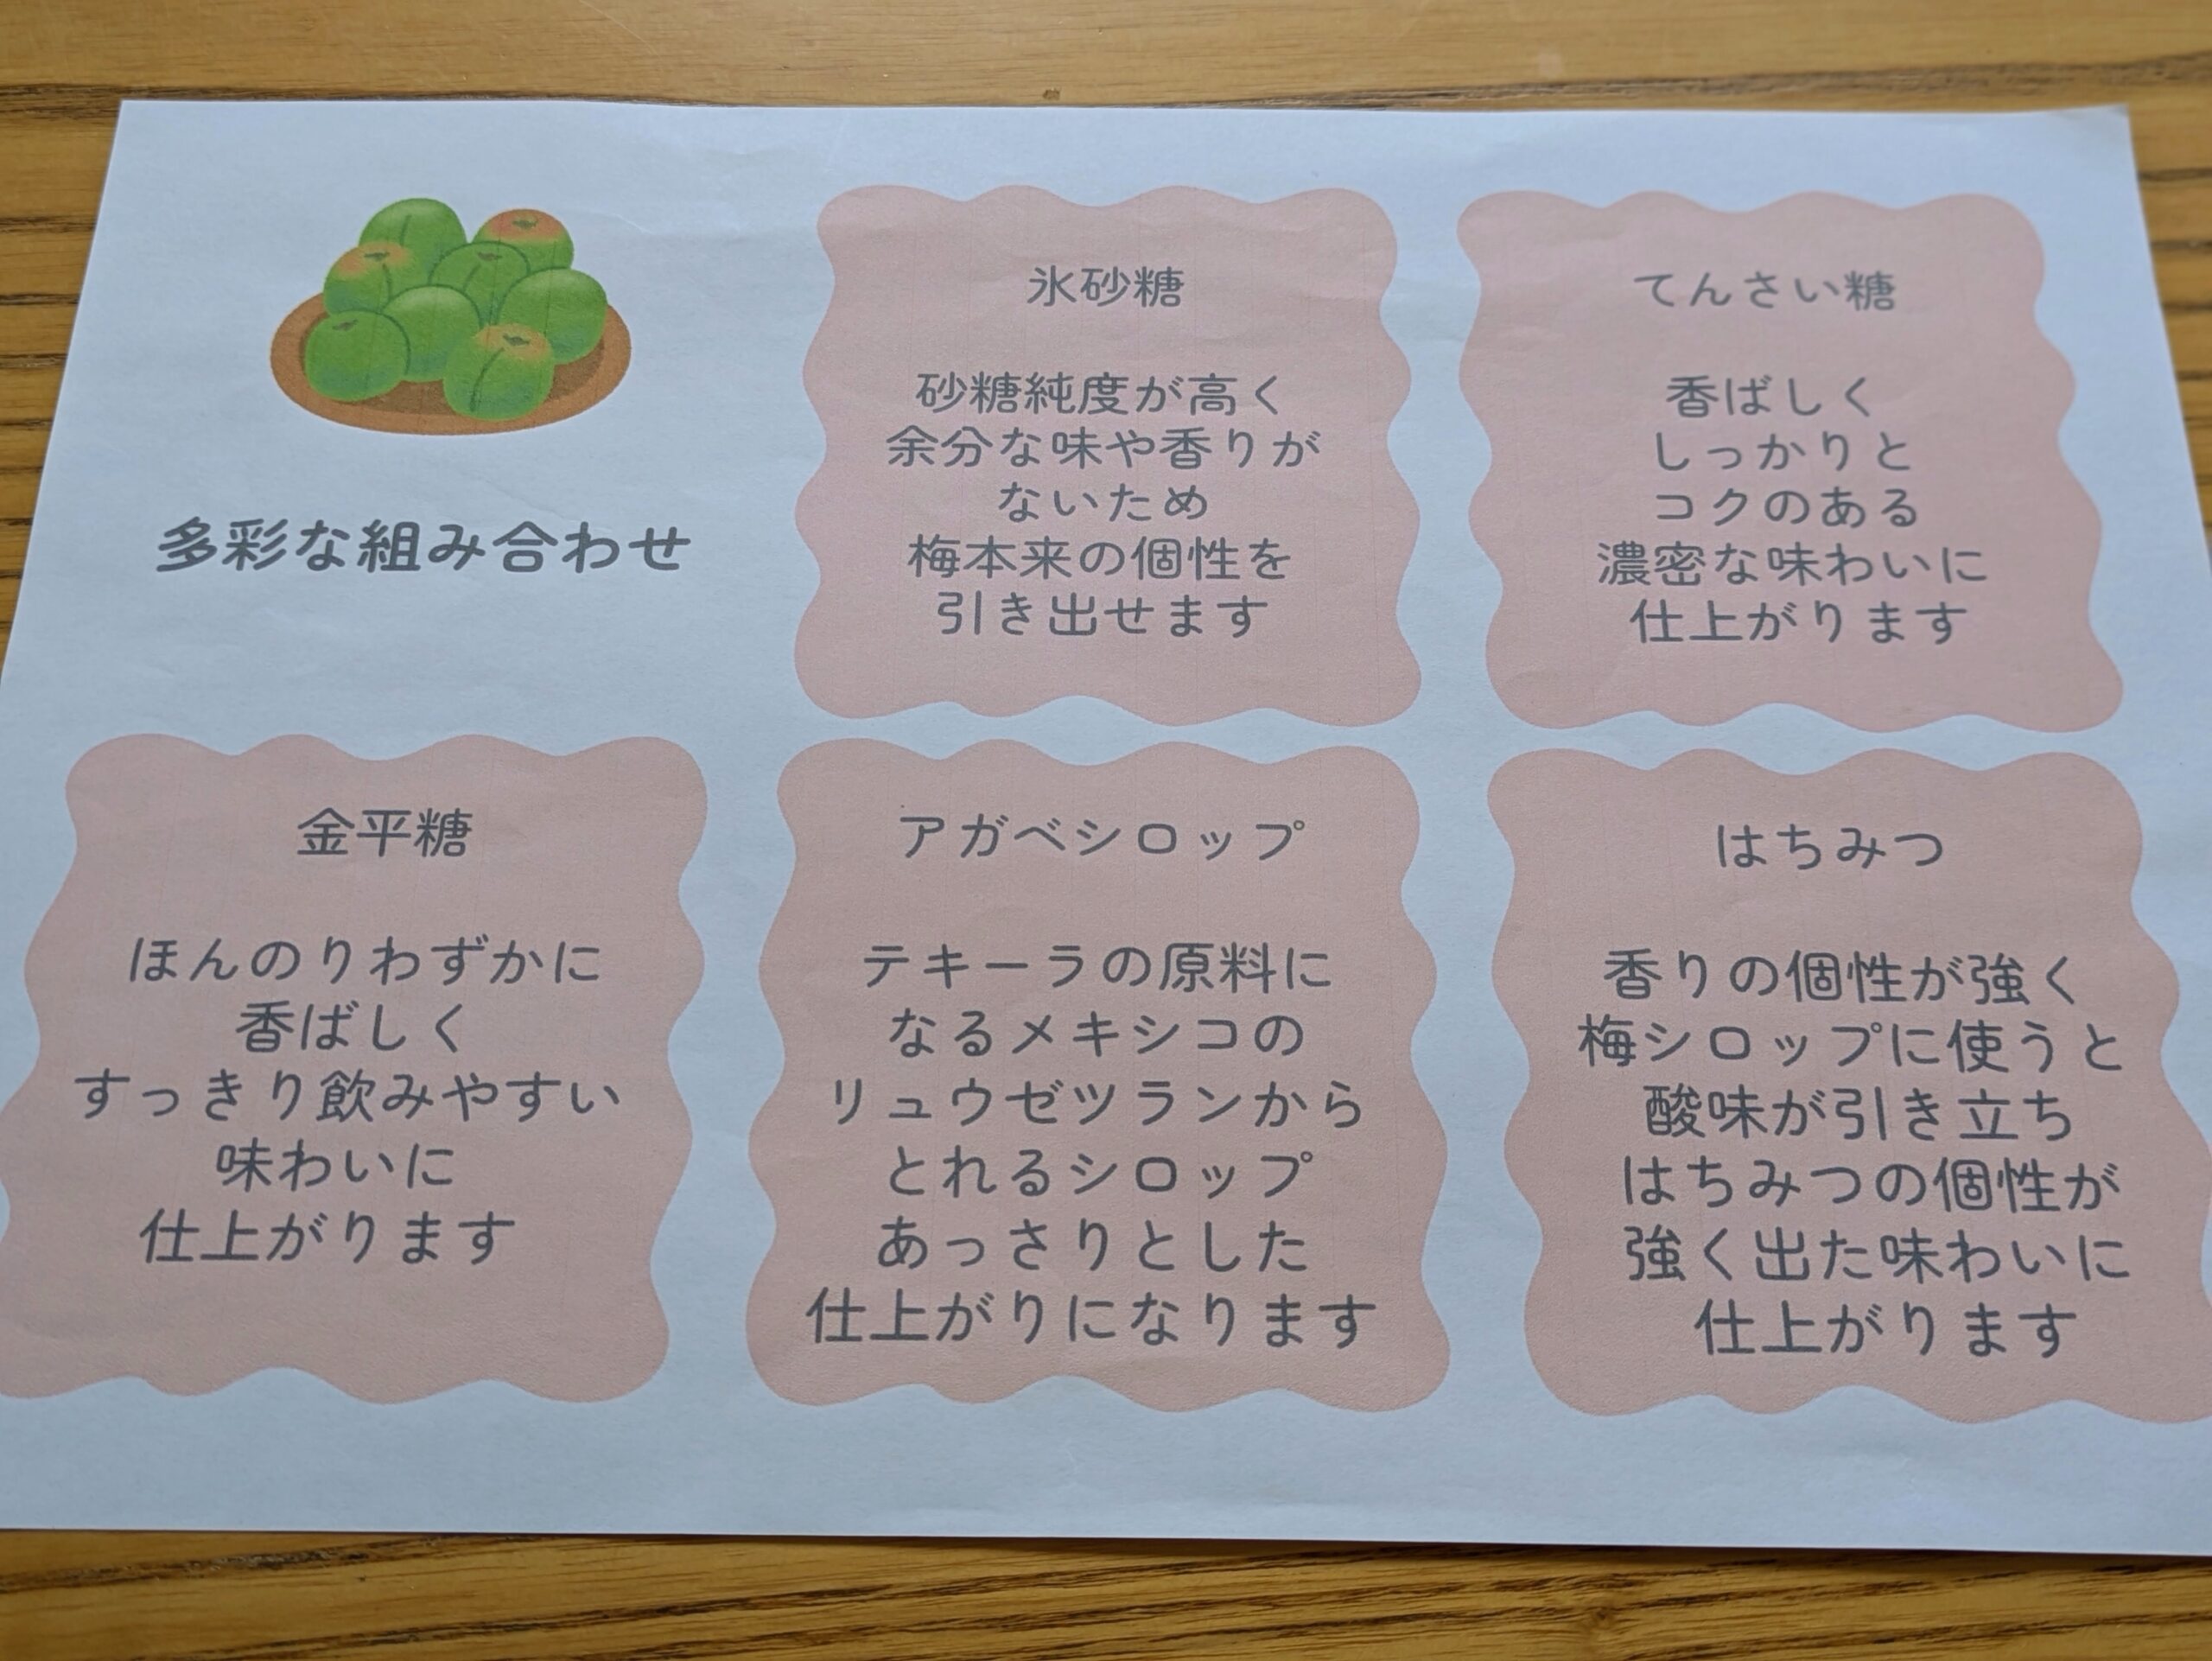 多彩な組み合わせ
氷砂糖
砂糖純度が高く
余分な味や香りが
ないため
梅本来の個性を
引き出せます
てんさい糖
香ばしく
しっかりと
コクのある
濃密な味わいに
仕上がります
金平糖
ほんのりわずかに
香ばしく
すっきり飲みやすい
味わいに
仕上がります
アガベシロップ
テキーラの原料に
なるメキシコの
リュウゼツランから
とれるシロップ
あっさりとした
仕上がりになります
はちみつ
香りの個性が強く
梅シロップに使うと
酸味が引き立ち
はちみつの個性が
強く出た味わいに
仕上がります